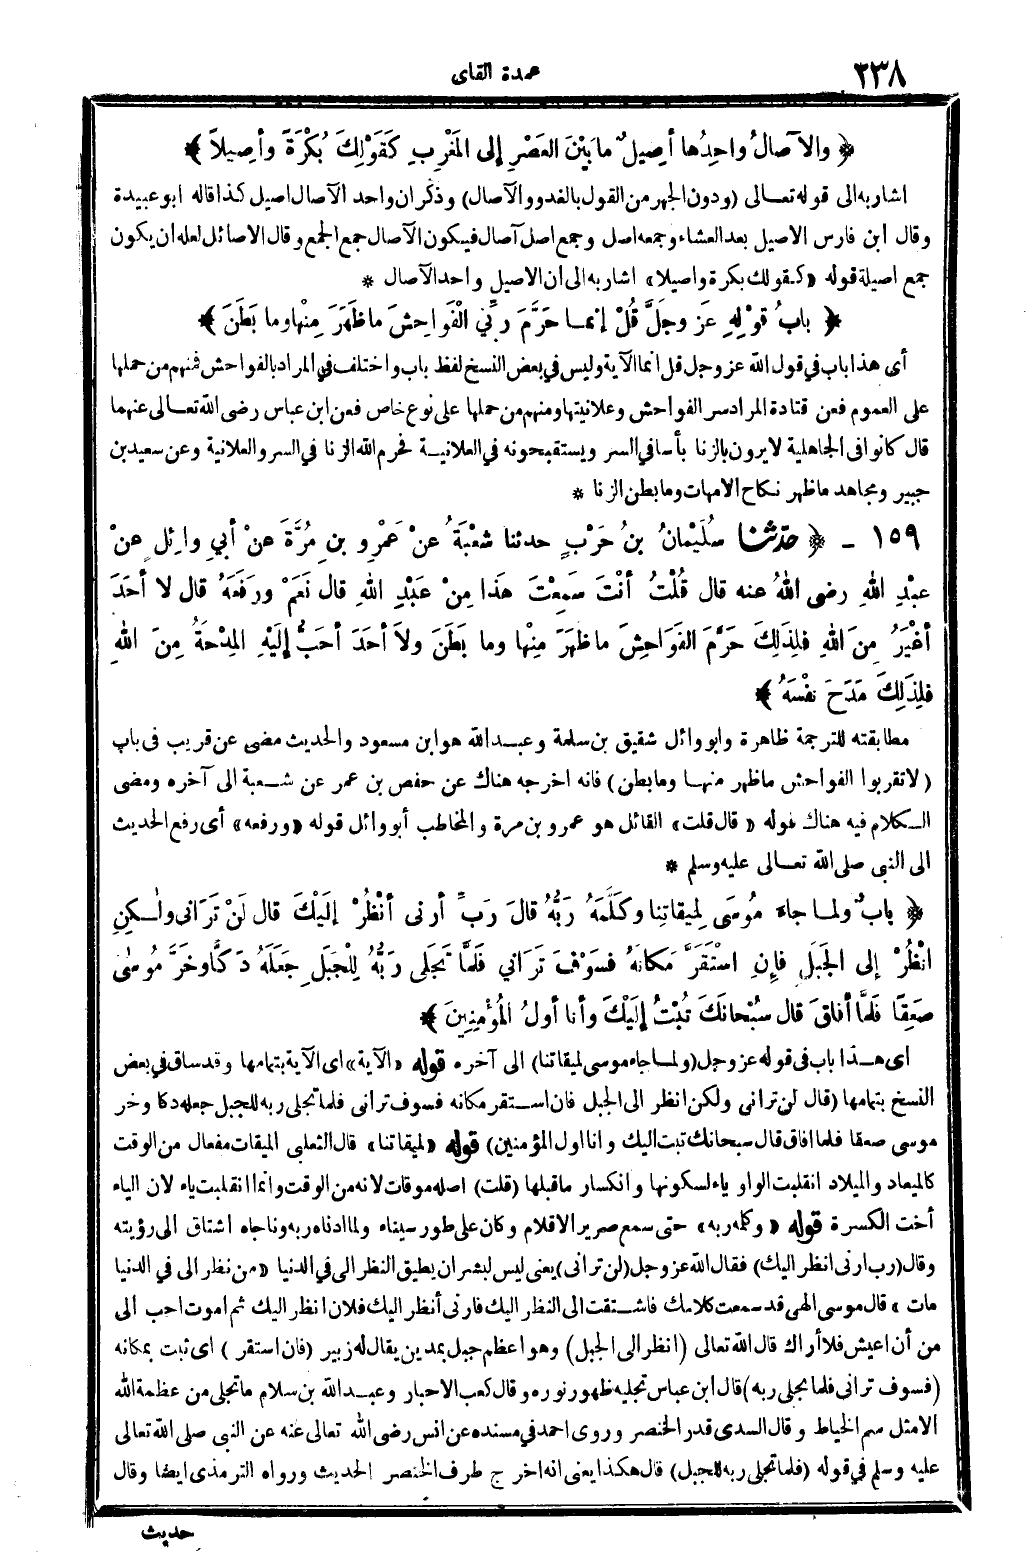 ٢٣٨
عمدة القاى
﴿ والآصالُ واحِدُها أصِيلٌ ما بَيْنَ العَصْرِ إلى المَغْرِبِ كَقَوْلِكَ بُكْرَةً وأصِيلاً ﴾
اشار به الى قوله تعالى (ودون الجهر من القول بالغدو والآصال) وذكر ان واحد الآصال اصيل كذا قاله ابو عبيدة
وقال ابن فارس الاصيل بعد العشاء وجمعه اصل وجمع اصل آصال فيكون الآصال جمع الجمع وقال الاصائل لعله ان يكون
جمع اصيلة قوله «كقولك بكرة واصيلا» اشار به الى ان الاصيل واحد الآصال *
﴿ بابُ قوْلِهِ عَزَ وجَلَّ قُلْ إنما حَرَّمَ رَبِّي الْفَواحِشَ ما ظَهَرَ مِنْها وما بَطَنَ ﴾
أى هذا باب في قول الله عز وجل قل انما الآية وليس في بعض النسخ لفظ باب واختلف في المراد بالفواحش فمنهم من حملها
على العموم فعن قتادة المراد سر الفواحش وعلانيتها ومنهم من حملها على نوع خاص فعن ابن عباس رضى الله تعالى عنهما
قال كانوا فى الجاهلية لا يرون بالزنا بأسا في السر ويستقبحونه في العلانية فحرم الله الزنا في السر والعلانية وعن سعيد بن
جبير ومجاهد ما ظهر نكاح الامهات وما بطن الزنا *
١٥٩ - ﴿ حدّثنا سُلَيْمانُ بنُ حَرْبٍ حدثنا شعْبَةُ عنْ عَمْرِو بنِ مُرَّةَ عنْ أبي وائِلٍ عنْ
عبْدِ اللهِ رضى اللهُ عنه قال قُلْتُ أنْتَ سَمِعْتَ هَذا مِنْ عَبْدِ اللهِ قال نَعَمْ ورفَعَهُ قال لا أحَدَ
أغْيَرُ مِنَ اللهِ فلِذَلِكَ حَرَّمَ الفَوَاحِشَ ما ظهَرَ مِنْها وما بَطَنَ ولاَ أحَدَ أحَبُّ إلَيْهِ المِدْحَةُ مِنَ اللهِ
فلِذَلِكَ مَدَحَ نفْسَهُ ﴾
مطابقته للترجمة ظاهرة وابو وائل شقيق بن سلمة وعبد الله هو ابن مسعود والحديث مضى عن قريب فى باب
(لا تقربوا الفواحش ما ظهر منها وما بطن) فانه اخرجه هناك عن حفص بن عمر عن شعبة الى آخره ومضى
الكلام فيه هناك قوله « قال قلت» القائل هو عمرو بن مرة والمخاطب أبو وائل قوله «ورفعه» أى رفع الحديث
الى النبى صلى الله تعالى عليه وسلم *
﴿ بابٌ ولما جاءَ مُوسَى لِميقاتِنا وكَلَّمَهُ رَبُّهُ قالَ رَبِّ أرنى أنْظُرْ إلَيْكَ قال لَنْ تَرَانى ولكنِ
انْظُرْ إلى الجَبَلِ فإنِ اسْتَقَرَّ مَكانَهُ فسَوْفَ تَرَاني فَلَمَّا تَجَلى رَبُّهُ لِلْجَبَلِ جَعَلَهُ دَكًّا وخَرَّ مُوسَى
صَعِقًا فَلَمَّا أفاقَ قال سُبْحانَكَ تُبْتُ إلَيْكَ وأنا أولُ المُؤْمِنِينَ ﴾
اى هذا باب فى قوله عز وجل (ولما جاء موسى لميقاتنا) الى آخره قوله «الآية» اى الآية بتمامها وقد ساق في بعض
النسخ بتمامها (قال لن ترانى ولكن انظر الى الجبل فان استقر مكانه فسوف ترانى فلما تجلى ربه للجبل جعله دكا وخر
موسى صعقا فلما افاق قال سبحانك تبت اليك وانا اول المؤمنين) قوله «لميقاتنا» قال الثعلبى الميقات مفعال من الوقت
كالميعاد والميلاد انقلبت الواو ياء لسكونها وانكسار ما قبلها (قلت) اصله موقات لانه من الوقت وانما انقلبت ياء لان الياء
أخت الكسرة قوله « وكلمه ربه» حتى سمع صرير الاقلام وكان على طور سيناء ولما ادناه ربه وناجاه اشتاق الى رؤيته
وقال (رب ارنى انظر اليك) فقال الله عز وجل (لن ترانى) يعنى ليس لبشر ان يطيق النظر الى في الدنيا «من نظر الى في الدنيا
مات» قال موسى الهى قد سمعت كلامك فاشتقت الى النظر اليك فارنى أنظر اليك فلان انظر اليك ثم اموت احب الى
من أن اعيش فلا أراك قال الله تعالى (انظر الى الجبل) وهو اعظم جبل بمدين يقال له زبير (فان استقر ) اى ثبت بمكانه
(فسوف ترانى فلما تجلى ربه) قال ابن عباس تجليه ظهور نوره وقال كعب الاحبار وعبد الله بن سلام ما تجلى من عظمة الله
الا مثل سم الخياط وقال السدى قدر الخنصر وروى احمد في مسنده عن انس رضى الله تعالى عنه عن النبى صلى الله تعالى
عليه وسلم في قوله (فلما تجلى ربه للجبل) قال هكذا يعنى انه اخرج طرف الخنصر الحديث ورواه الترمذى ايضا وقال
حديث